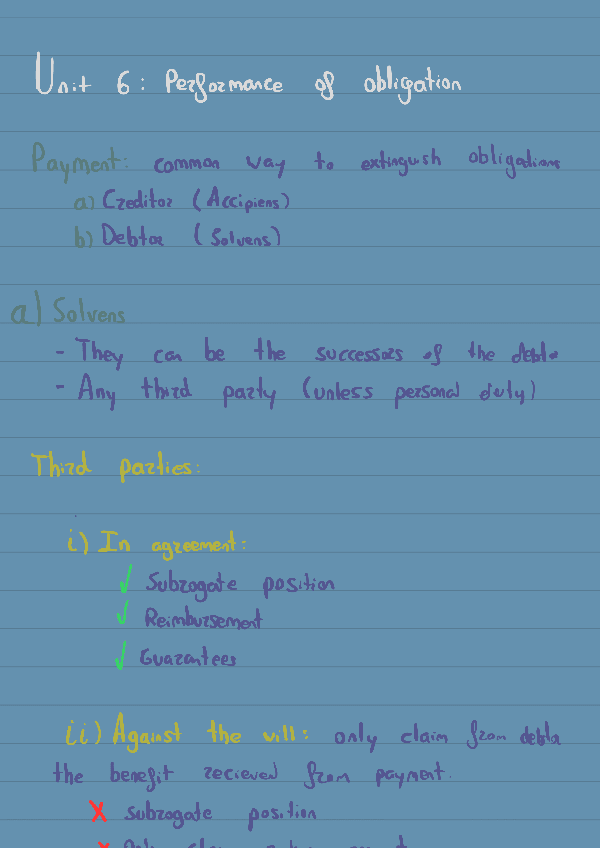 Unit 6: Performance of obligation
Payment: common way to extinguish obligations
a) Creditor (Accipiens)
b) Debtor (Solvens)
a) Solvens
- They can be the successors of the debtor
- Any third party (unless personal duty)
Third parties:
i) In agreement:
✓ Subrogate position
✓ Reimbursement
✓ Guarantees
ii) Against the will: only claim from debtor
the benefit recieved from payment.
X Subrogate position
X